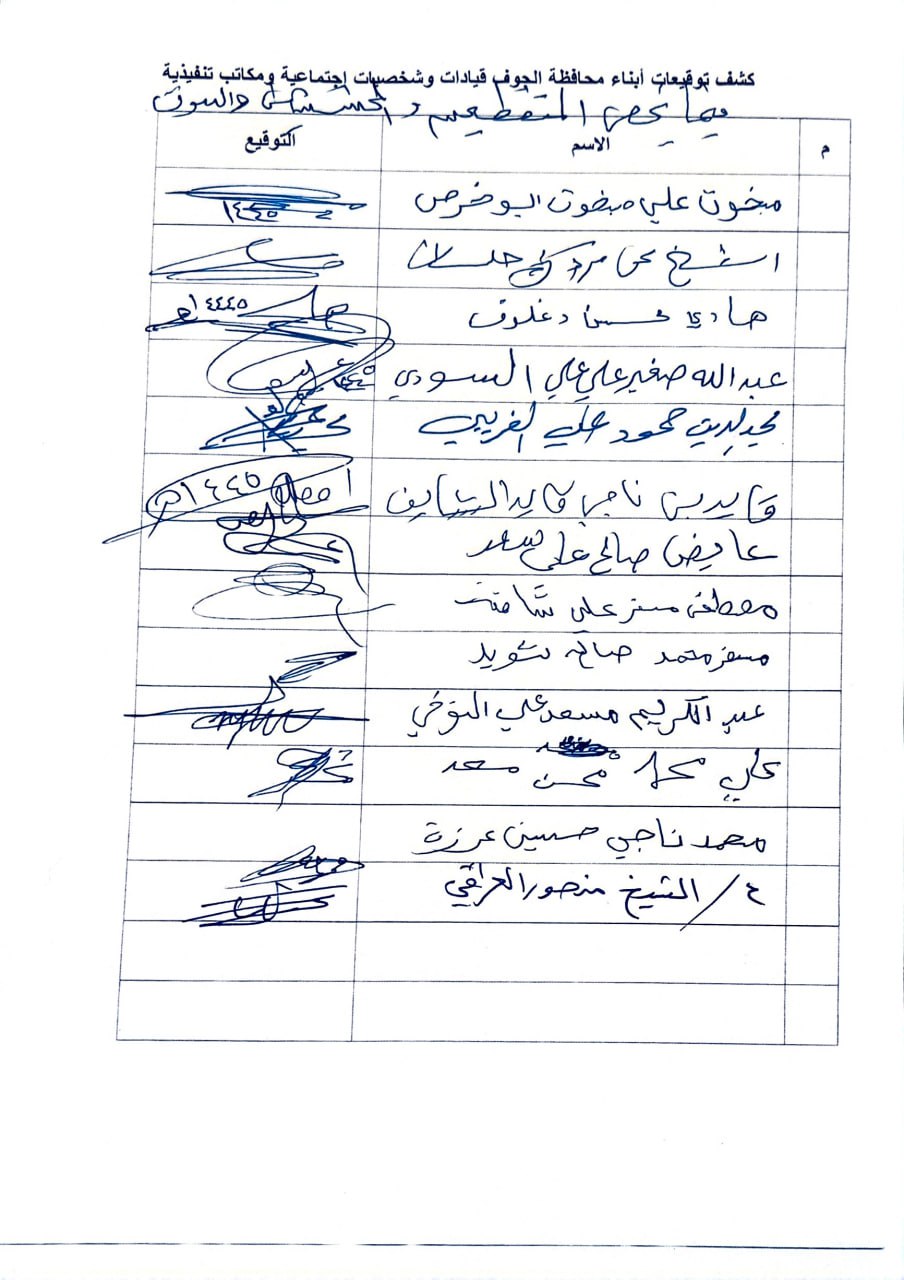 كشف توقيعات أبناء محافظة الجوف قيادات وشخصيات إجتماعية ومكاتب تنفيذية
فيما يخص المتقطعين و والسوق
م الاسم التوقيع
مبخوت علي مبخوت ابو خرص ١٤٤٥
الشيخ
هادي محسن دغلوق ١٤٤٥هـ
عبدالله صغير علي علي السودي
مجدالدين حمود علي الغريبي
قايد بن ناجي قايد الشايف ١٤٤٥هـ
عايض صالح علي سعد
مصطفى مسفر علي
مسفر محمد صالح شويد
عبد الكريم مسعد علي
علي محمد محسن مسعد
محمد ناجي حسين عرزة
ع/ الشيخ منصور العراقي